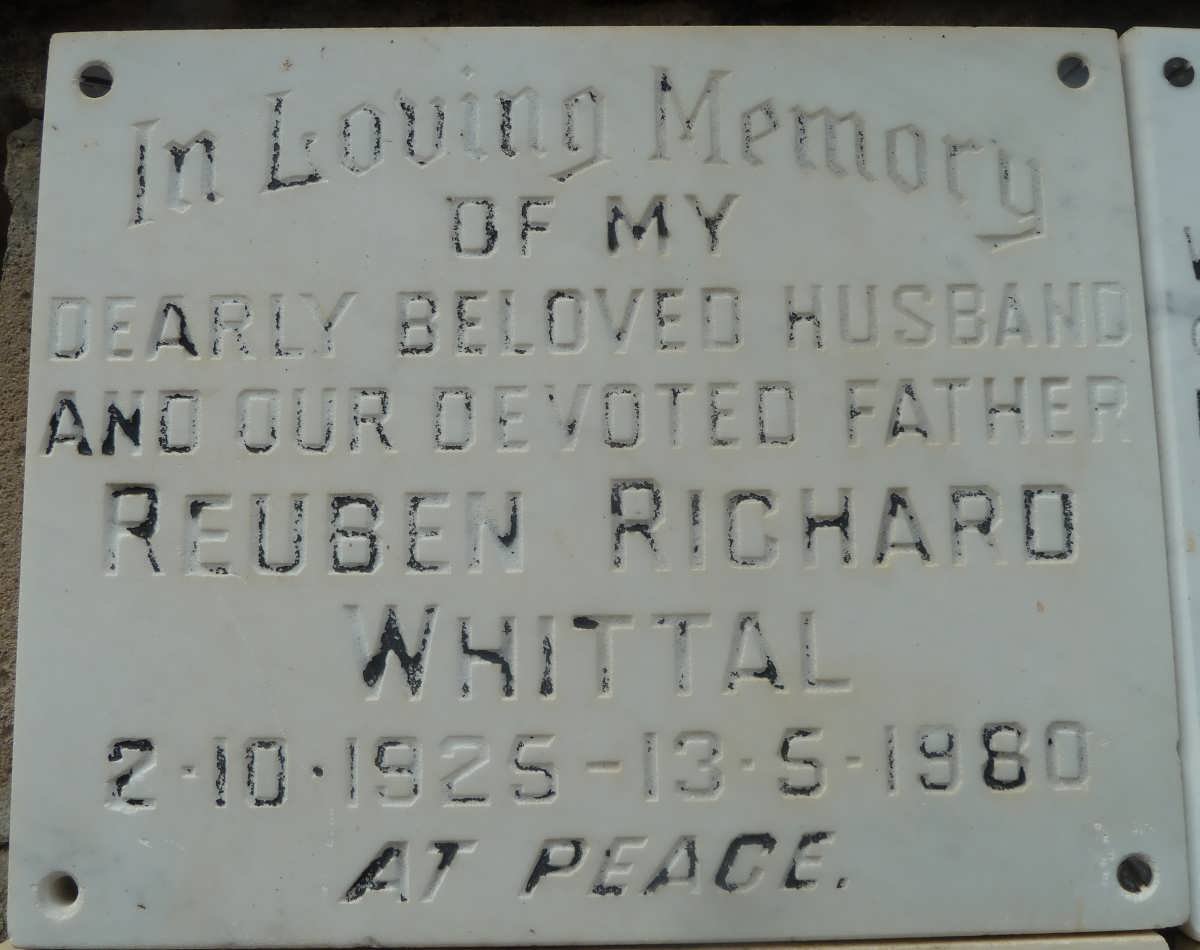 In Loving Memory
OF MY
DEARLY BELOVED HUSBAND
AND OUR DEVOTED FATHER
REUBEN RICHARD
WHITTAL
2·10·1925 – 13·5·1980
AT PEACE.